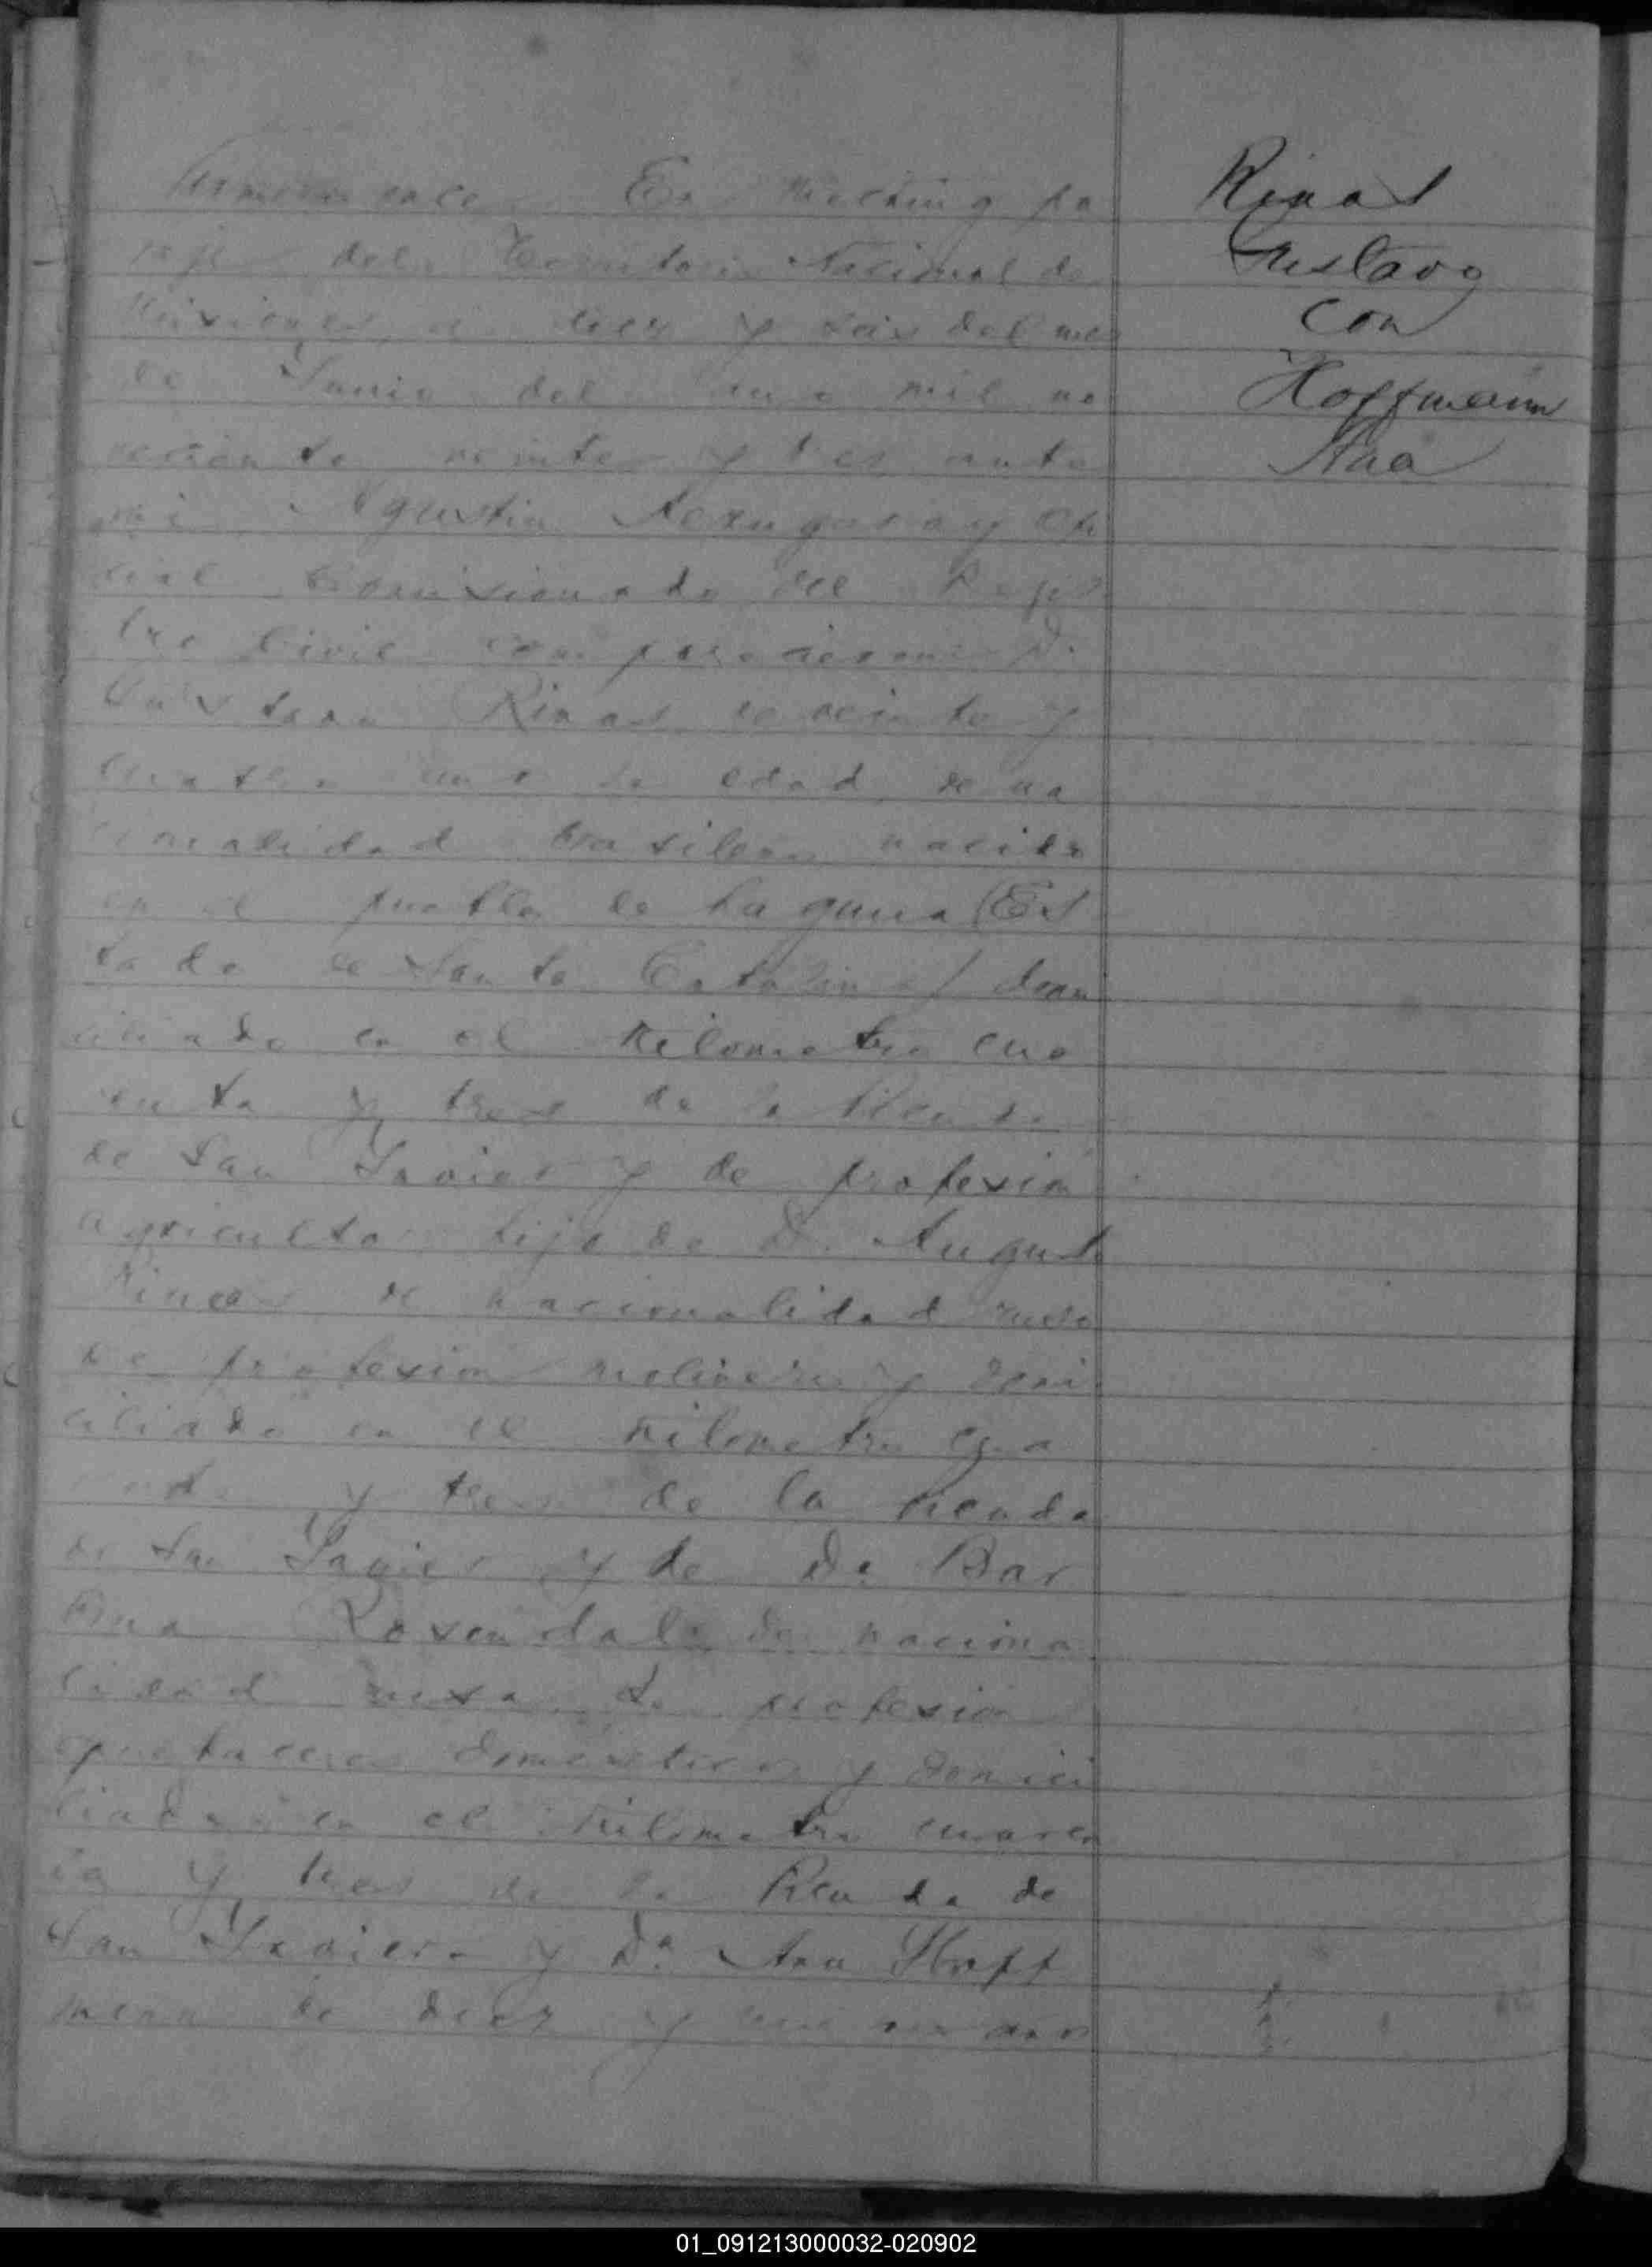 Numero once En Mecking pa
raje del Territorio Nacional de
Misiones a diez y seis del mes
de Junio del ano mil no
veciento veinte y tres ante
mi Agustin Ofi
cial Comisionado del Regis
tro Civil comparecieron D.
Gustavo Rinas de veinte y
cuatro ano de edad de na
cionalidad brasilera nacido
en el pueblo de Laguna (Es
tado de Santa Catarina) domi
ciliado en el Kilometro cua
renta y tres de la Picada
de San Javier y de profesion
agricultor hijo de D. Augusto
Rinas de nacionalidad ruso
de profesion molinero y domi
ciliado en el Kilometro cua
renta y tres de la Picada
de San Javier y de Da Bar
bina Rosendal de naciona
lidad rusa de profesion
quehaceres domesticos y domici
liada en el Kilometro cuaren
ta y tres de la Picada de
San Javier y Da Ana Hoff
mann de diez y nueve anos
Rinas
Gustavo
con
Hoffmann
Ana
01_091213000032-020902